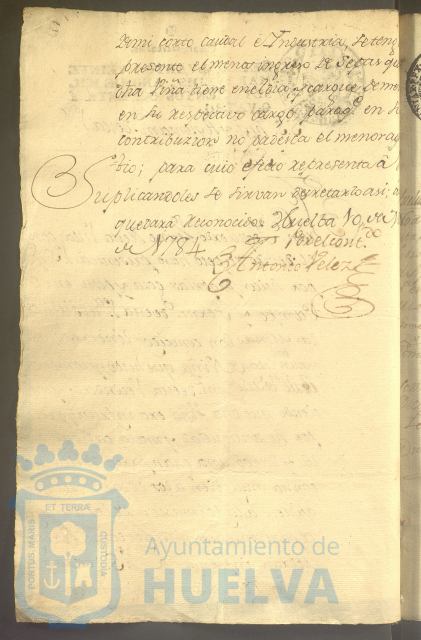 Demi corto caudal è Industria, se teng
presente el menor ingreso de Sepas que
tha Viña tiene en el dia, y cargue
en su respectivo cargo, para q.e en
contribuz.on no padesca el menor ag
bio; para cuio efecto representa â
Suplicandoles se sirvan decretarlo asi;
quedará Reconocido. Huelba 10, de
de 1784
Antonio Velez
ET TERRÆ
PORTUS MARIS
CUSTODIA
Ayuntamiento de
HUELVA